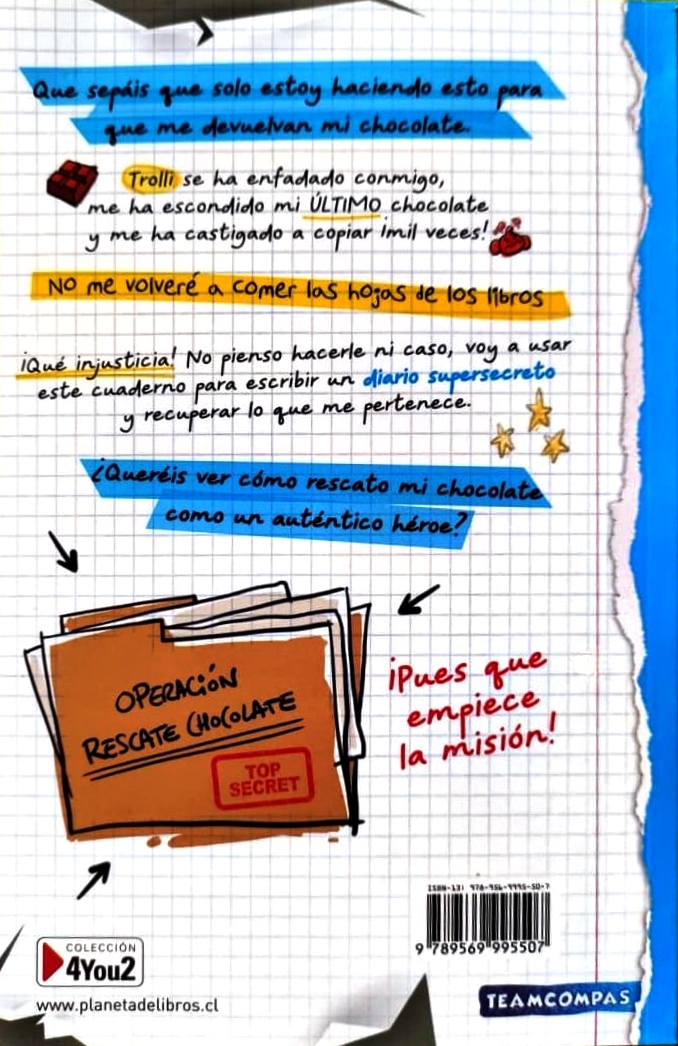 Que sepáis que solo estoy haciendo esto para
que me devuelvan mi chocolate.
Trolli se ha enfadado conmigo,
me ha escondido mi ÚLTIMO chocolate
y me ha castigado a copiar ¡mil veces!
No me volveré a comer las hojas de los libros
¡Qué injusticia! No pienso hacerle ni caso, voy a usar
este cuaderno para escribir un diario supersecreto
y recuperar lo que me pertenece.
¿Queréis ver cómo rescato mi chocolate
como un auténtico héroe?
OPERACIÓN
RESCATE CHOCOLATE
TOP
SECRET
¡Pues que
empiece
la misión!
ISBN-13: 978-956-9995-50-7
9 789569 995507
COLECCIÓN
4You2
www.planetadelibros.cl
TEAMCOMPAS